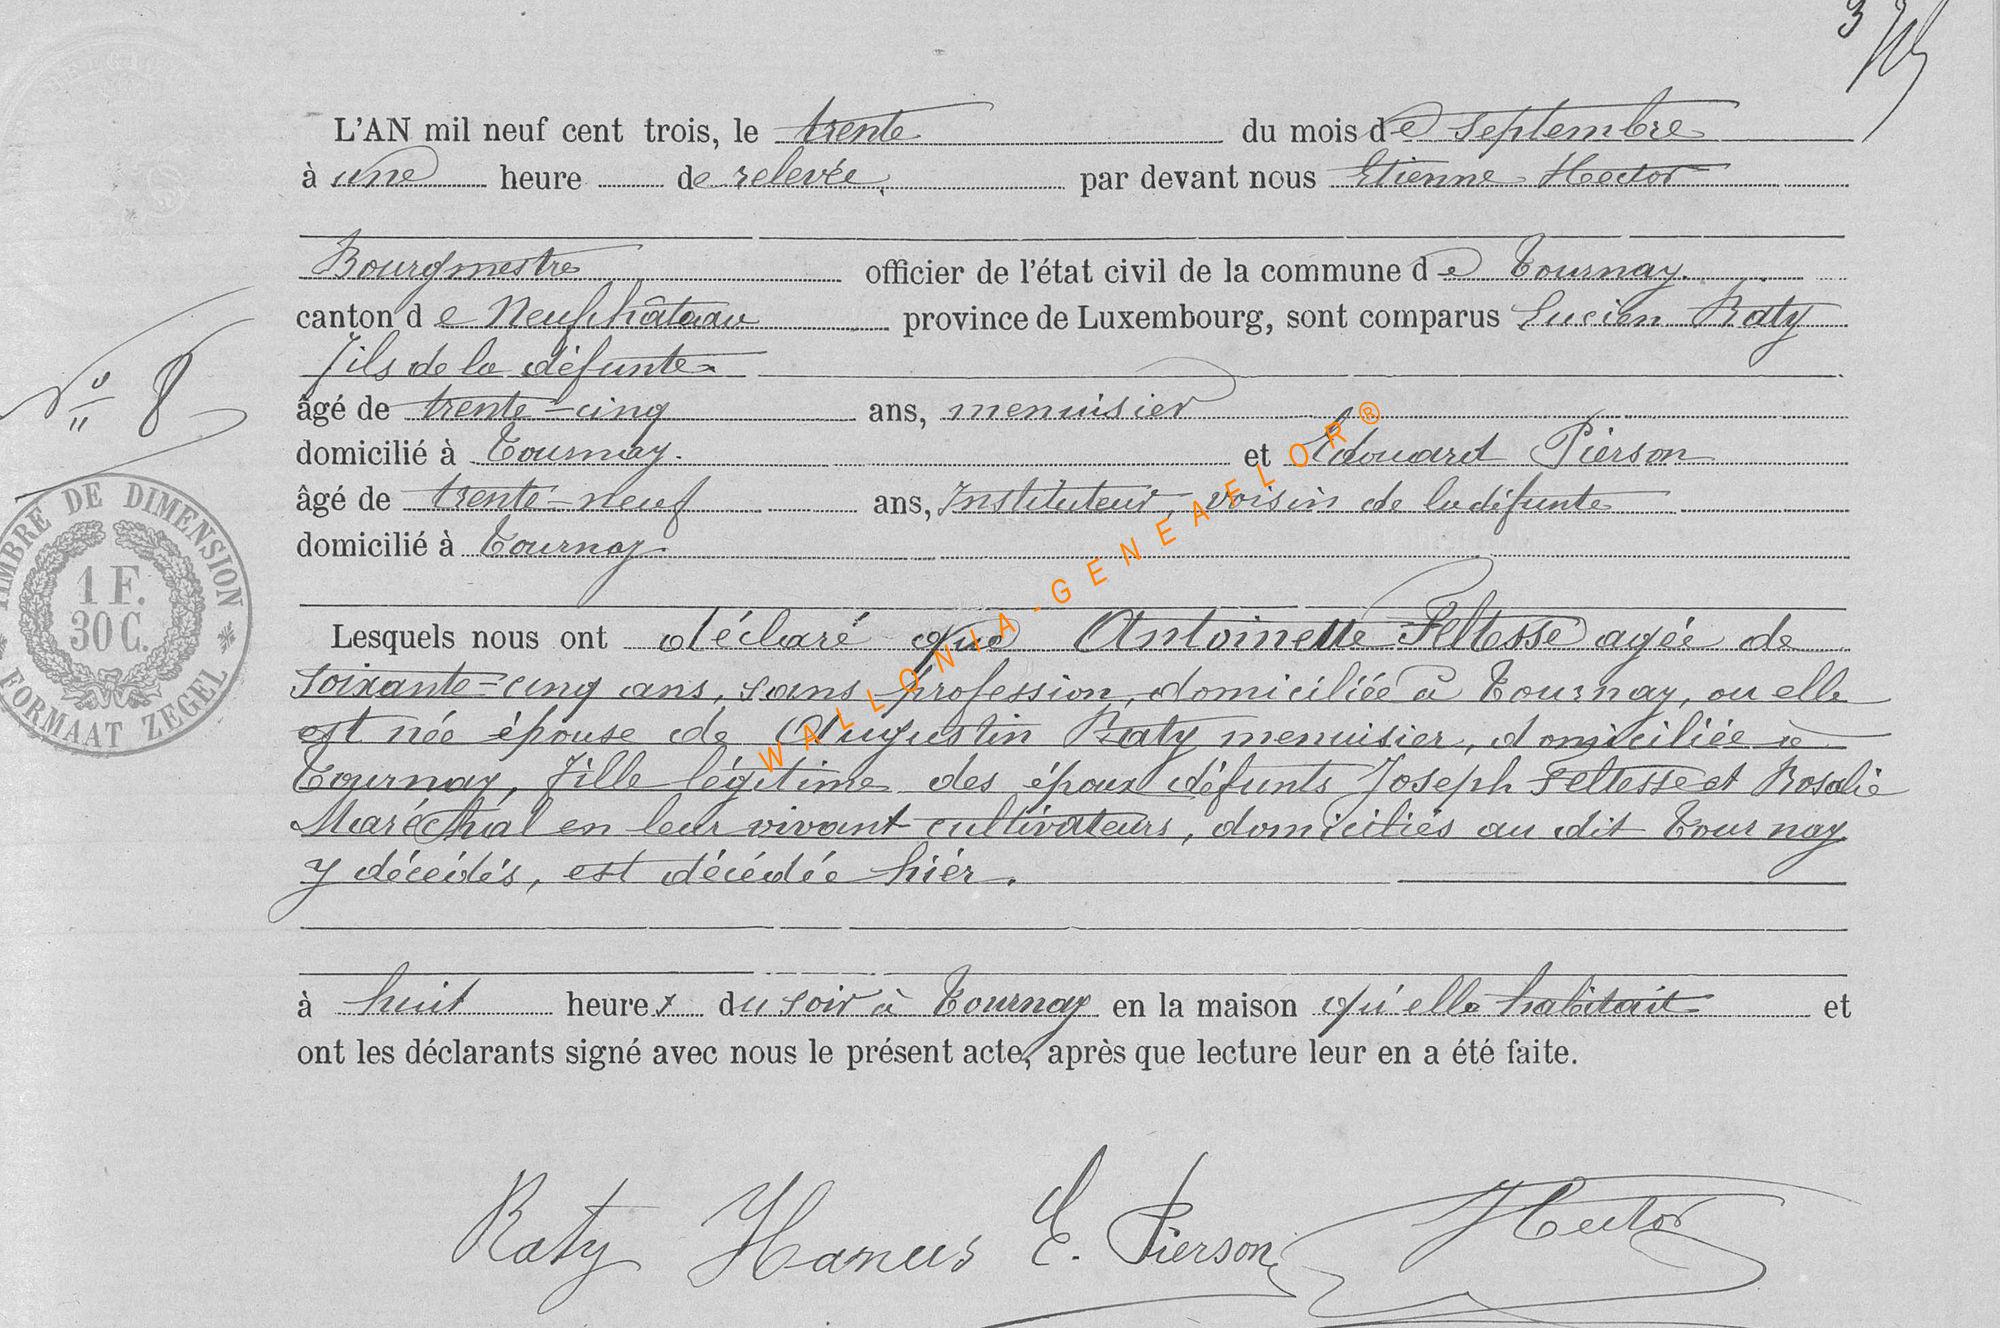 L'AN mil neuf cent trois, le trente du mois de septembre
à une heure de relevée, par devant nous Etienne Hector
Bourgmestre officier de l'état civil de la commune de Tournay.
canton de Neufchâteau province de Luxembourg, sont comparus Lucien Raty
fils de la défunte
N° 8
âgé de trente-cinq ans, menuisier
domicilié à Tournay. et Edouard Pierson
âgé de trente-neuf ans, Instituteur, voisin de la défunte
domicilié à Tournay.
TIMBRE DE DIMENSION
1 F.
30 C.
FORMAAT ZEGEL
Lesquels nous ont déclaré que Antoinette Feltesse agée de
soixante-cinq ans, sans profession, domiciliée à Tournay, ou elle
est née épouse de Augustin Raty menuisier, domiciliée à
Tournay, fille légitime des époux défunts Joseph Feltesse et Rosalie
Maréchal en leur vivant cultivateurs, domiciliés au dit Tournay
y décédés, est décédée hiér.
à huit heures du soir à Tournay en la maison qu'elle habitait et
ont les déclarants signé avec nous le présent acte, après que lecture leur en a été faite.
Raty Hanus E. Pierson Hector
WALLONIA-GENEAFLOR®